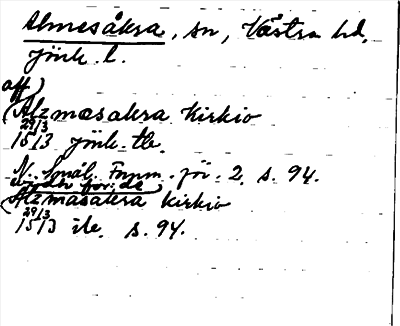 Almesåkra, sn, Västra hd,
Jönk. l.
aff)
(Alzmasakra Kirkio
29/3
1513 Jönk. tb.
N. Smål. Fnpm. jör. 2, s. 94.
(Alzmasakra Kirkio
29/3
1513 ib. s. 94.